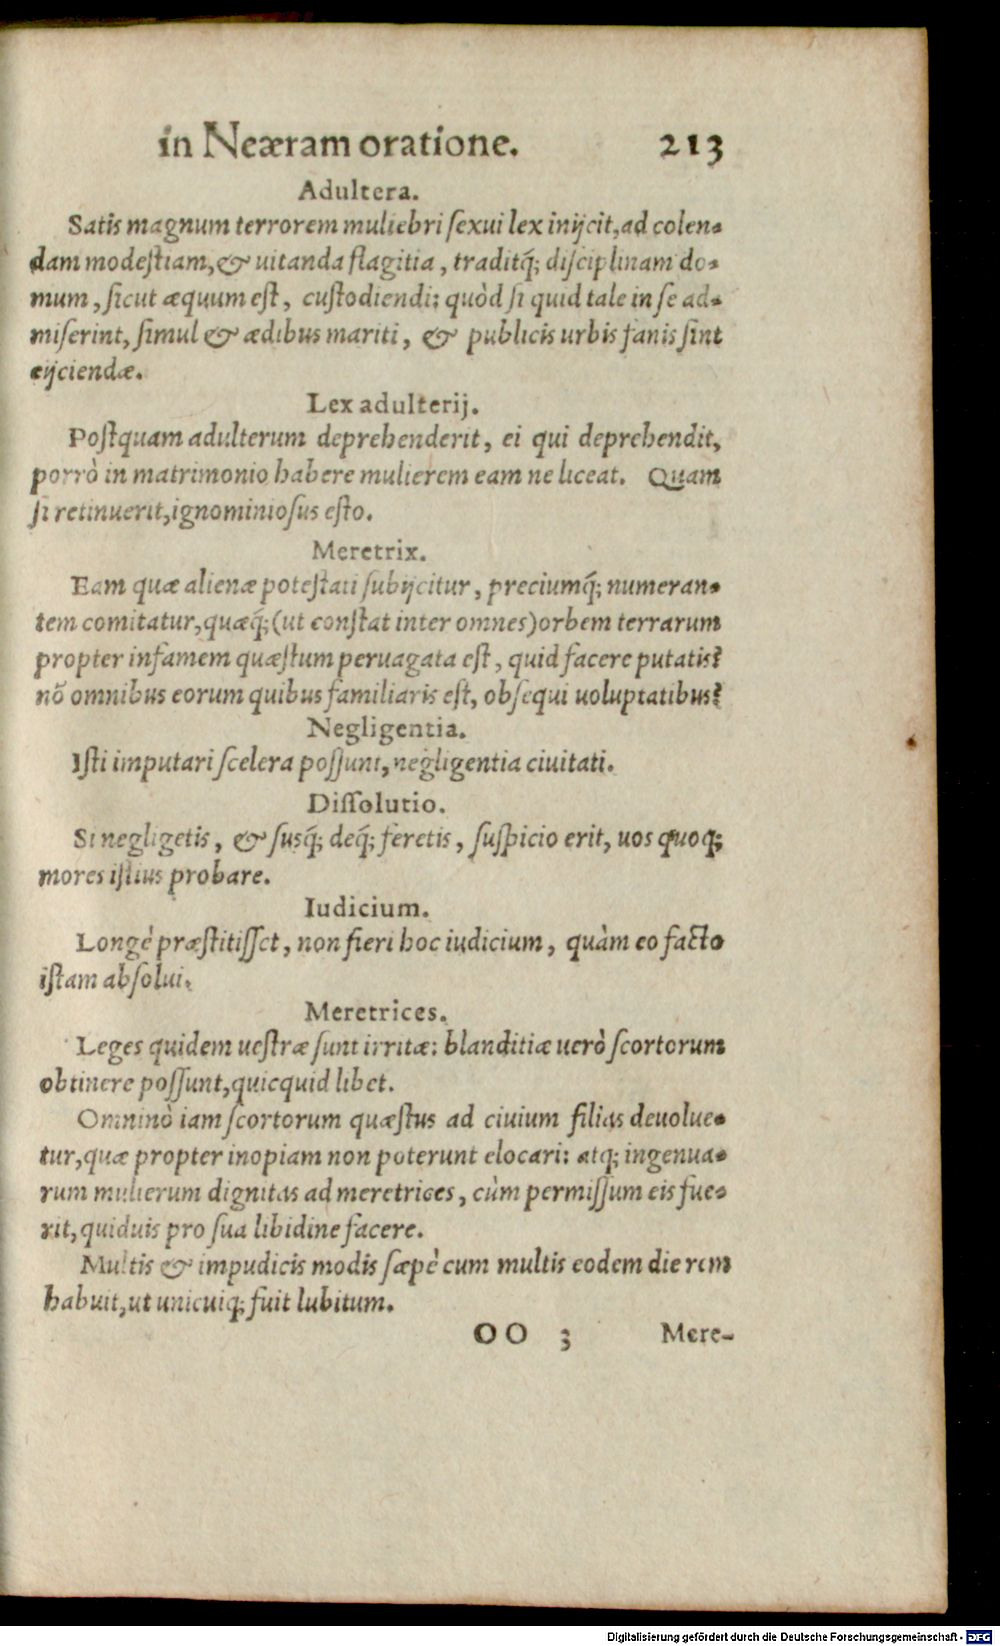 in Neæram oratione. 213
Adultera.
Satis magnum terrorem muliebri sexui lex inijcit, ad colen-
dam modestiam, & uitanda flagitia, traditq́; disciplinam do-
mum, sicut æquum est, custodiendi: quòd si quid tale in se ad-
miserint, simul & ædibus mariti, & publicis urbis fanis sint
eijciendæ.
Lex adulterij.
Postquam adulterum deprehenderit, ei qui deprehendit,
porrò in matrimonio habere mulierem eam ne liceat. Quam
si retinuerit, ignominiosus esto.
Meretrix.
Eam quæ alienæ potestati subijcitur, preciumq́; numeran-
tem comitatur, quæq́; (ut constat inter omnes) orbem terrarum
propter infamem quæstum peruagata est, quid facere putatis?
nõ omnibus eorum quibus familiaris est, obsequi uoluptatibus?
Negligentia.
Isti imputari scelera possunt, negligentia ciuitati.
Dissolutio.
Si negligetis, & susq́; deq́; feretis, suspicio erit, uos quoq;
mores istius probare.
Iudicium.
Longè præstitisset, non fieri hoc iudicium, quàm eo facto
istam absolui.
Meretrices.
Leges quidem uestræ sunt irritæ: blanditiæ uerò scortorum
obtinere possunt, quicquid libet.
Omninò iam scortorum quæstus ad ciuium filias deuolue-
tur, quæ propter inopiam non poterunt elocari: atq; ingenua-
rum mulierum dignitas ad meretrices, cùm permissum eis fue-
rit, quiduis pro sua libidine facere.
Multis & impudicis modis sæpè cum multis eodem die rem
habuit, ut unicuiq; fuit lubitum.
OO 3 Mere-
Digitalisierung gefördert durch die Deutsche Forschungsgemeinschaft - DFG